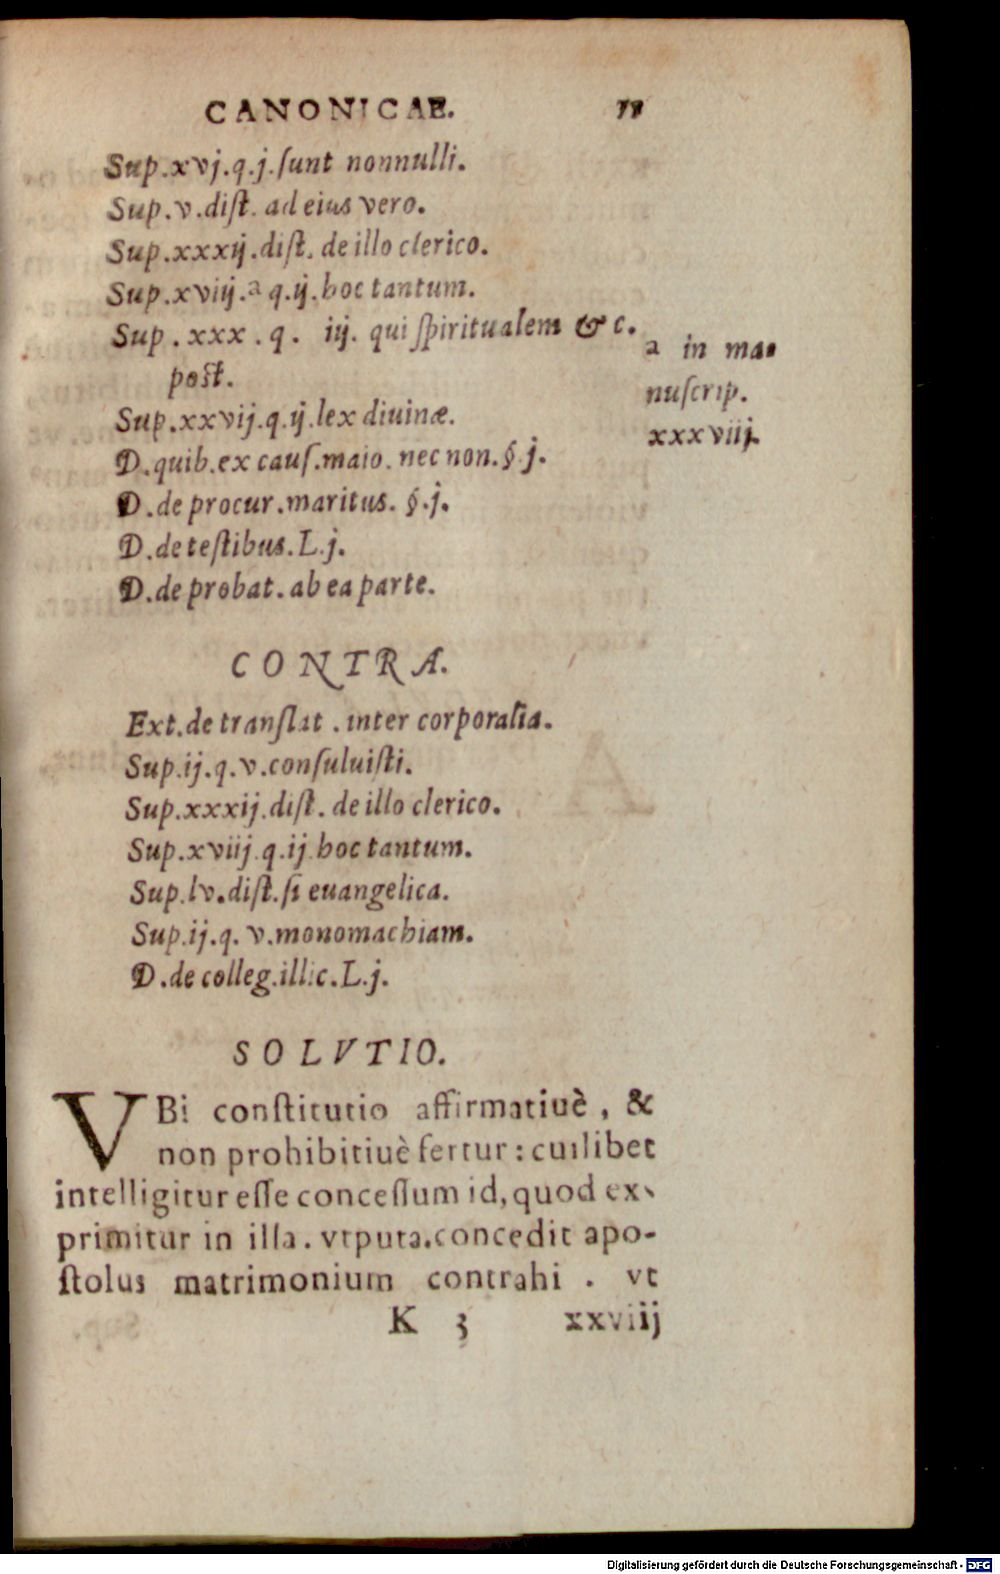 CANONICAE. 78
Sup.xvj.q.j.ſunt nonnulli.
Sup.v.diſt. ad eius vero.
Sup.xxxij.diſt. de illo clerico.
Sup.xviij.a q.ij.hoc tantum.
Sup.xxx.q. iij. qui ſpiritualem & c.
post.
a in ma-
nuſcrip.
xxxviij.
Sup.xxvij.q.ij.lex diuinæ.
D.quib.ex cauſ.maio. nec non.§.j.
D.de procur.maritus. §.j.
D.de teſtibus.L.j.
D.de probat. ab ea parte.
CONTRA.
Ext.de tranſlat. inter corporalia.
Sup.ij.q.v.conſuluiſti.
Sup.xxxij.diſt. de illo clerico.
Sup.xviij.q.ij.hoc tantum.
Sup.lv.diſt.ſi euangelica.
Sup.ij.q.v.monomachiam.
D.de colleg.illic.L.j.
SOLVTIO.
VBi conſtitutio affirmatiuè, &
non prohibitiuè fertur: cuilibet
intelligitur eſſe conceſſum id, quod ex-
primitur in illa. vtputa.concedit apo-
ſtolus matrimonium contrahi. vt
K 3 xxviij
Digitalisierung gefördert durch die Deutsche Forschungsgemeinschaft - DFG